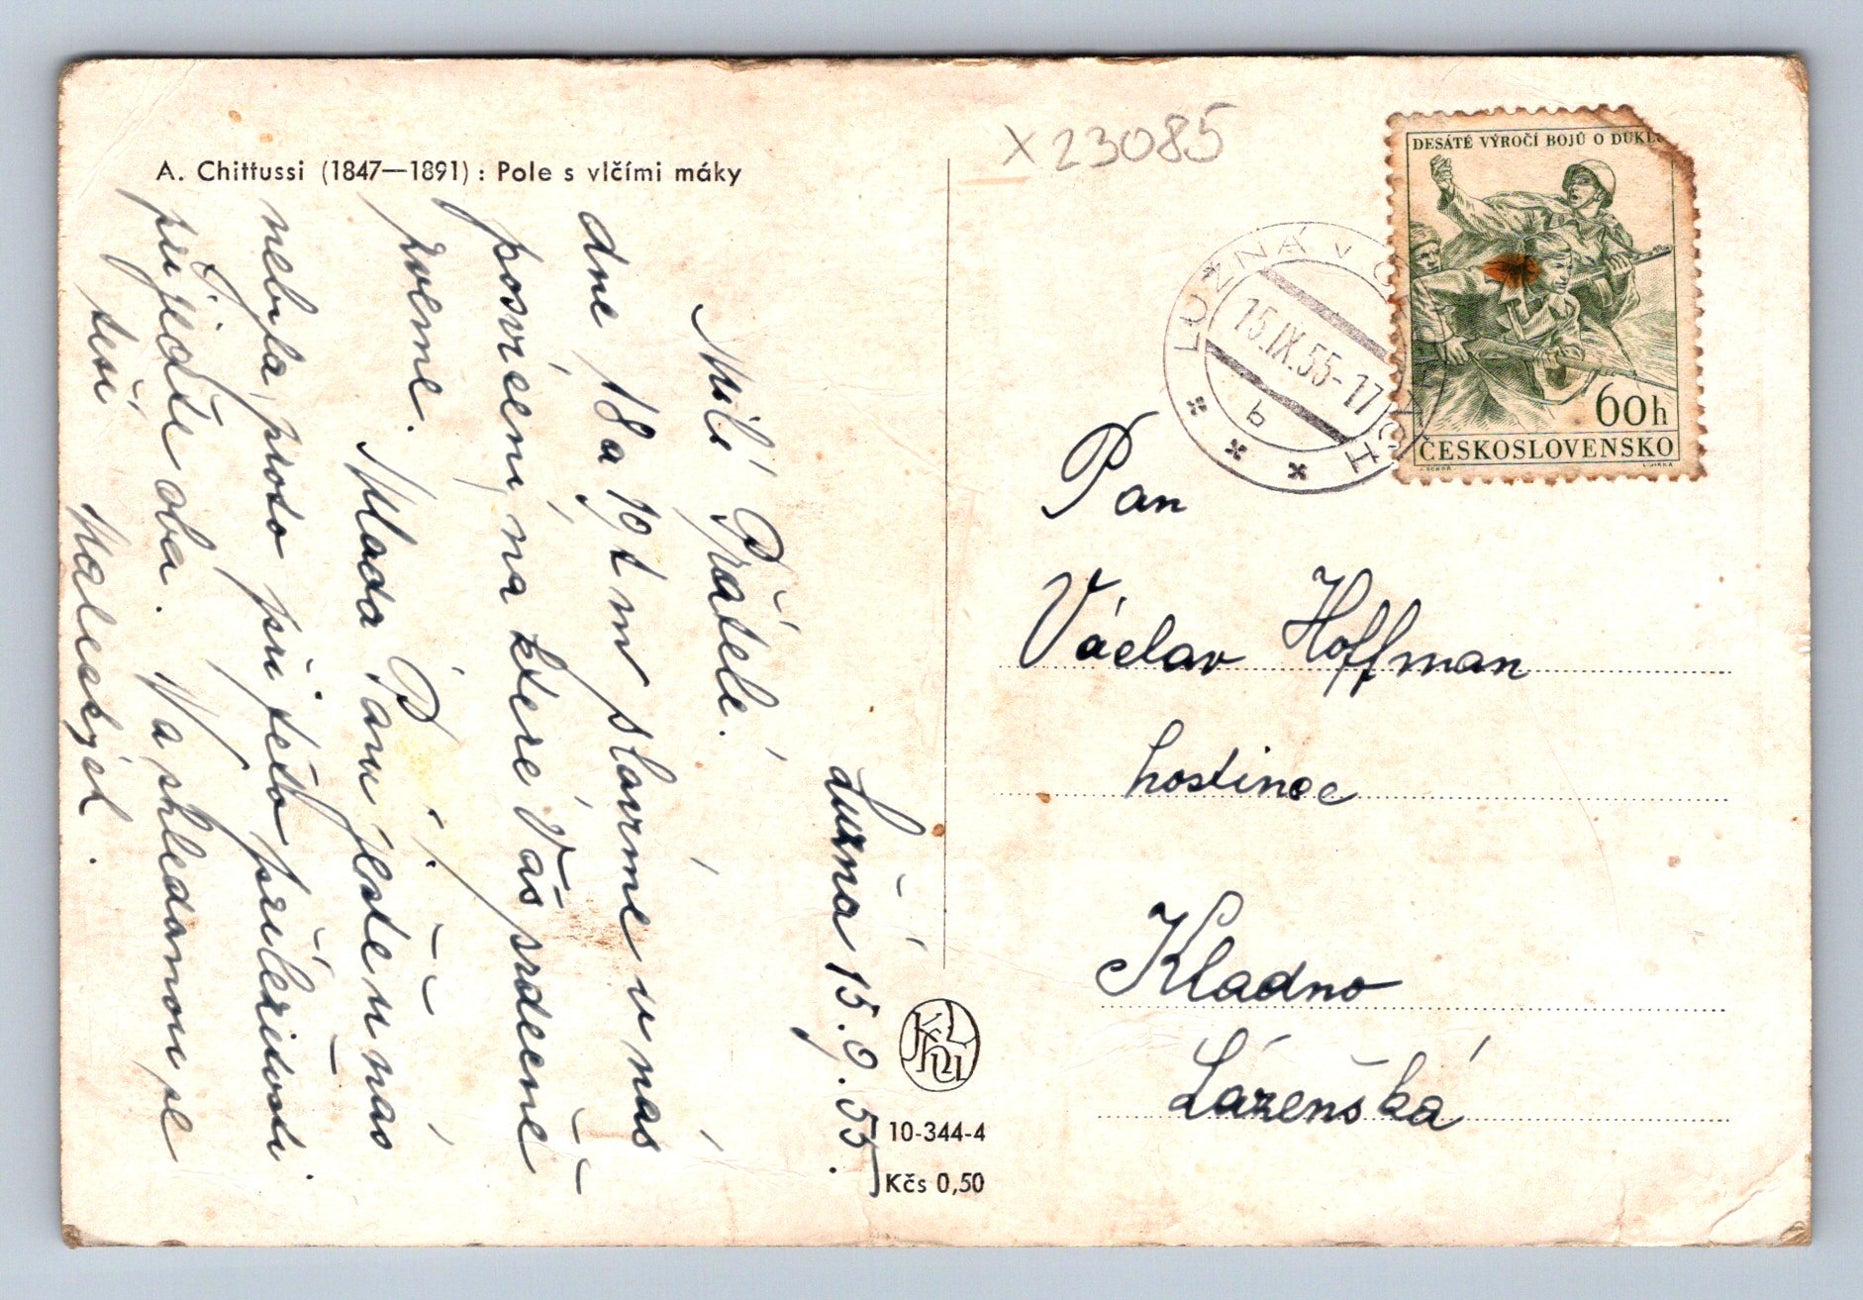 A. Chittussi (1847—1891) : Pole s vlčími máky
X 23085
DESÁTÉ VÝROČÍ BOJŮ O DUKLU
60h
ČESKOSLOVENSKO
LUŽNÁ V ČECHÁCH
15.IX.55-17
b
Lužná 15.9.55.
Milí Přátelé.
dne 18 a 19 t m slavíme u nás
posvícení, na které Vás srdečně
zveme.
Mladá Paní ještě u nás
nebyla, proto při této příležitosti
přijeďte oba. Na shledanou se
těší
Pan
Václav Hoffman
hostinec
Kladno
Lázeňská
10-344-4
Kčs 0,50